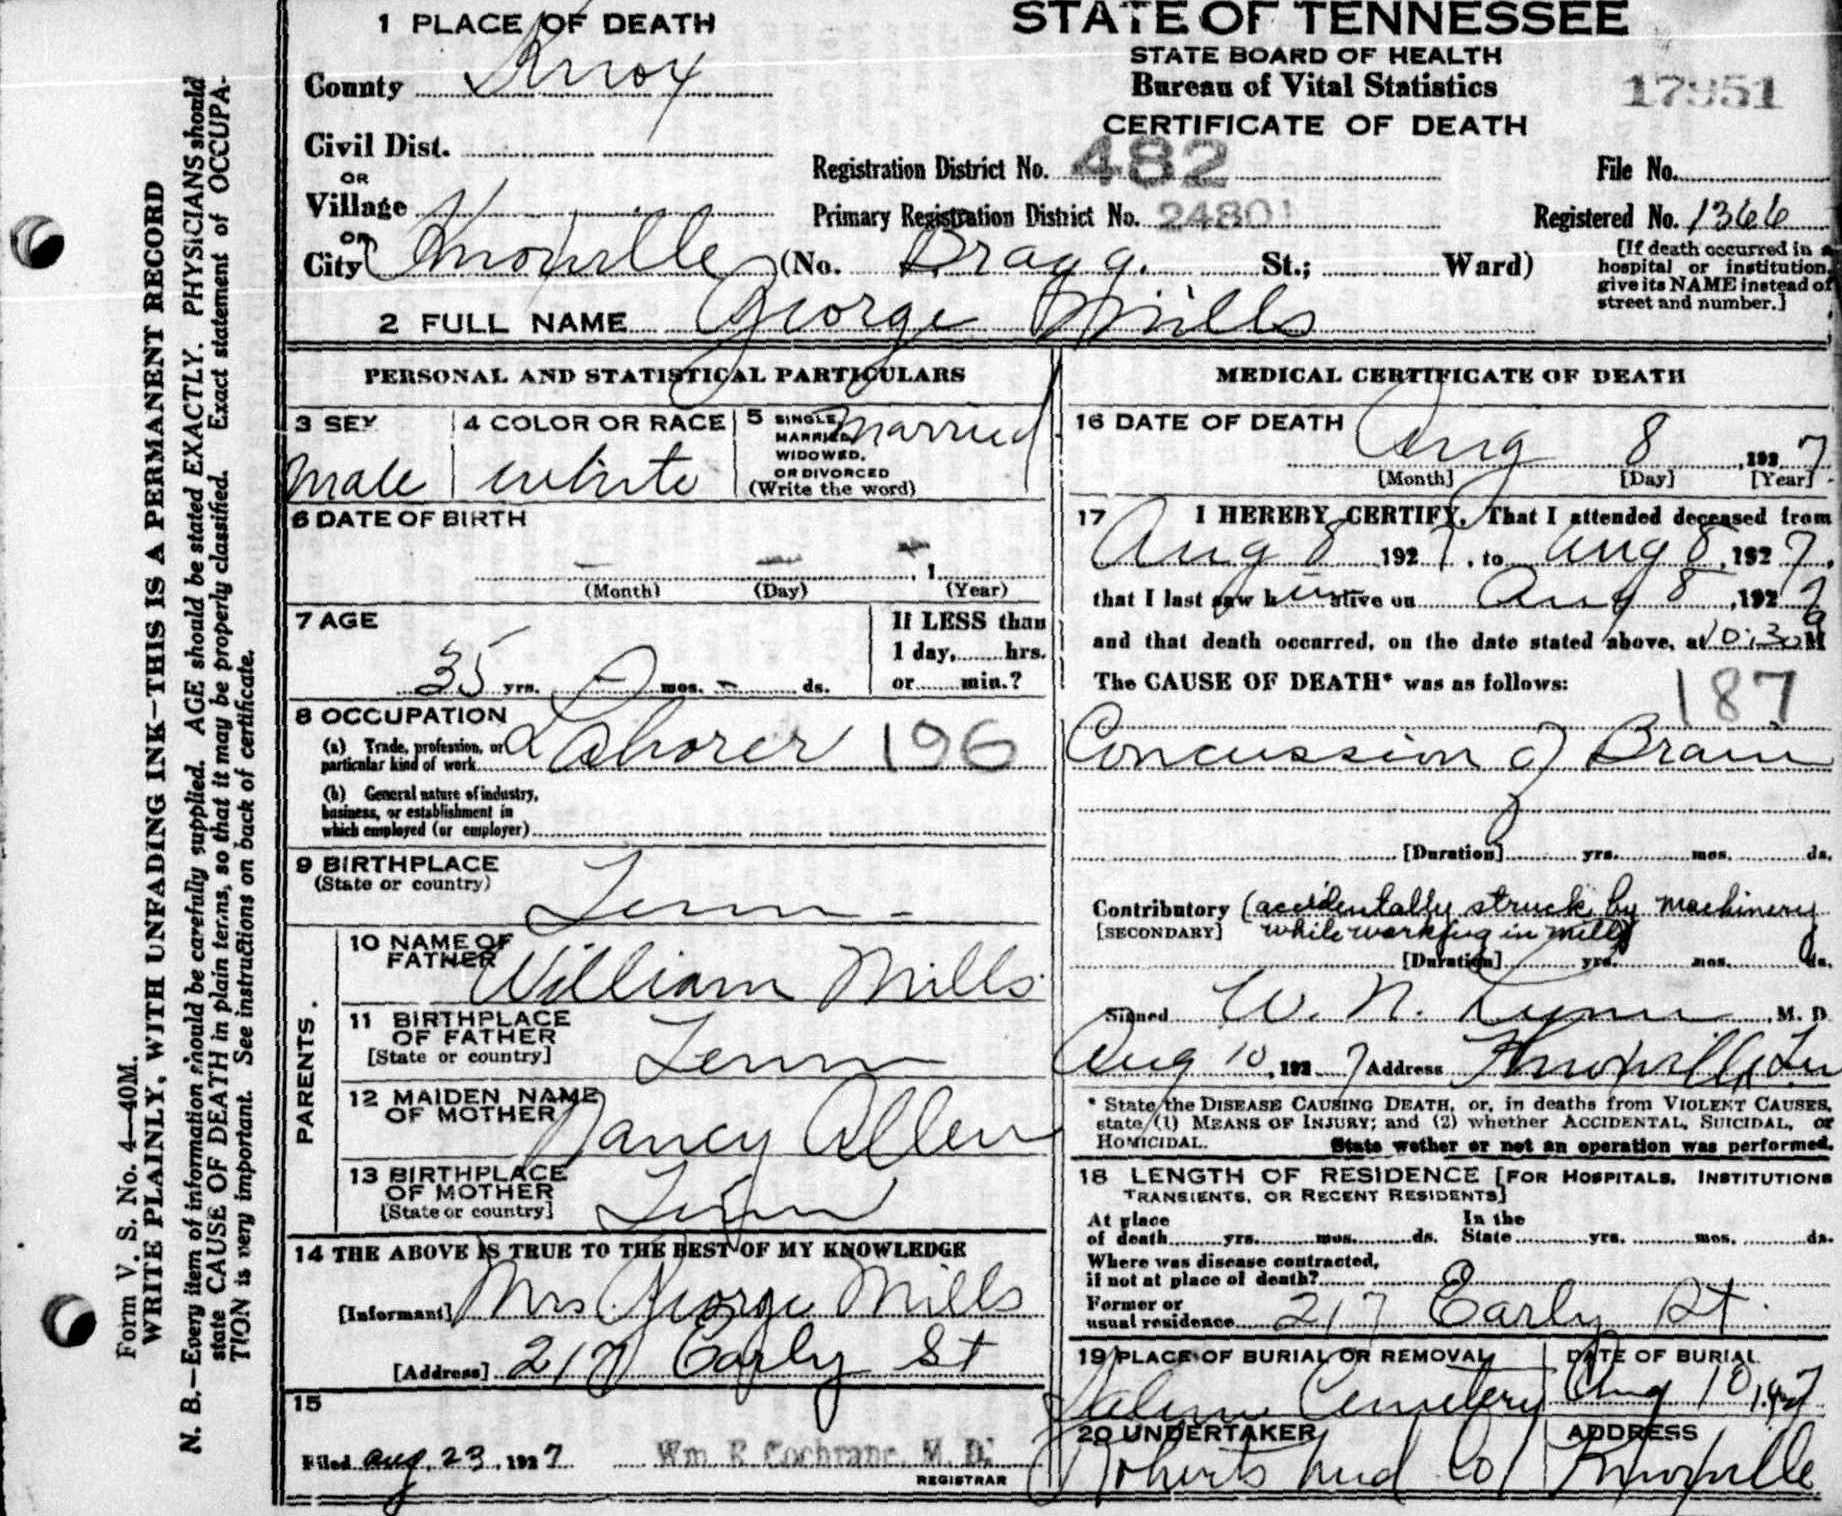 1 PLACE OF DEATH
County Knox
Civil Dist.
OR
Village
OR
City Knoxville (No. Bragg. St.; Ward)
STATE OF TENNESSEE
STATE BOARD OF HEALTH
Bureau of Vital Statistics
CERTIFICATE OF DEATH
17951
Registration District No. 482
File No.
Primary Registration District No. 24801
Registered No. 1366
[If death occurred in a
hospital or institution,
give its NAME instead of
street and number.]
2 FULL NAME George Mills
PERSONAL AND STATISTICAL PARTICULARS
3 SEX
male
4 COLOR OR RACE
white
5 SINGLE,
MARRIED,
WIDOWED,
OR DIVORCED
(Write the word)
married
6 DATE OF BIRTH
, 1
(Month) (Day) (Year)
7 AGE
35 yrs. 0 mos. - ds.
If LESS than
1 day, hrs.
or min.?
8 OCCUPATION
(a) Trade, profession, or
particular kind of work Laborer 196
(b) General nature of industry,
business, or establishment in
which employed (or employer)
9 BIRTHPLACE
(State or country)
Tenn -
PARENTS.
10 NAME OF
FATHER William Mills
11 BIRTHPLACE
OF FATHER
[State or country] Tenn
12 MAIDEN NAME
OF MOTHER Nancy Allen
13 BIRTHPLACE
OF MOTHER
[State or country] Tenn
14 THE ABOVE IS TRUE TO THE BEST OF MY KNOWLEDGE
[Informant] Mrs. George Mills
[Address] 217 Early St
15
Filed Aug. 23, 1927 Wm R Cochrane, M. D.
REGISTRAR
MEDICAL CERTIFICATE OF DEATH
16 DATE OF DEATH
Aug 8, 1927
[Month] [Day] [Year]
17 I HEREBY CERTIFY, That I attended deceased from
Aug 8 1927, to Aug 8, 1927.
that I last saw him alive on Aug 8, 1927
and that death occurred, on the date stated above, at 10:30 a M
The CAUSE OF DEATH* was as follows:
187
Concussion of Brain
[Duration] yrs. mos. ds.
Contributory (accidentally struck by machinery
[SECONDARY] while working in mill)
[Duration] yrs. mos. ds.
Signed W. N. Lynn, M. D
Aug 10, 1927 Address Knoxville, Tn
* State the DISEASE CAUSING DEATH, or, in deaths from VIOLENT CAUSES,
state (1) MEANS OF INJURY; and (2) whether ACCIDENTAL, SUICIDAL, or
HOMICIDAL. State wether or not an operation was performed.
18 LENGTH OF RESIDENCE [FOR HOSPITALS, INSTITUTIONS
TRANSIENTS, OR RECENT RESIDENTS]
At place
of death yrs. mos. ds.
In the
State yrs. mos. ds.
Where was disease contracted,
if not at place of death?
Former or
usual residence 217 Early St.
19 PLACE OF BURIAL OR REMOVAL
Salem Cemetery
DATE OF BURIAL
Aug 10, 1927
20 UNDERTAKER
Roberts Und Co
ADDRESS
Knoxville
Form V. S. No. 4—40M.
WRITE PLAINLY, WITH UNFADING INK—THIS IS A PERMANENT RECORD
N. B.—Every item of information should be carefully supplied. AGE should be stated EXACTLY. PHYSICIANS should
state CAUSE OF DEATH in plain terms, so that it may be properly classified. Exact statement of OCCUPA-
TION is very important. See instructions on back of certificate.